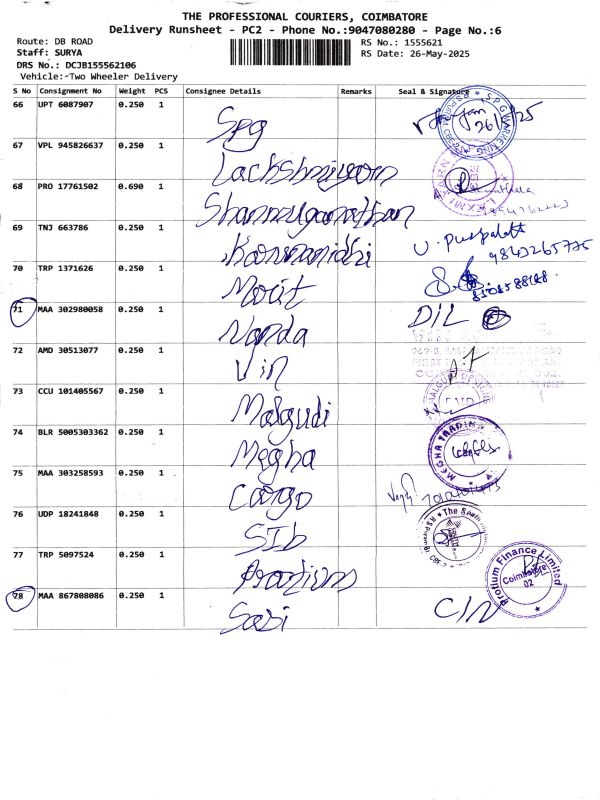 THE PROFESSIONAL COURIERS, COIMBATORE
Delivery Runsheet - PC2 - Phone No.:9047080280 - Page No.:6
Route: DB ROAD
RS No.: 1555621
Staff: SURYA
RS Date: 26-May-2025
DRS No.: DCJB155562106
Vehicle:-Two Wheeler Delivery
S No Consignment No Weight PCS Consignee Details Remarks Seal & Signature
66 UPT 6087907 0.250 1 Spg 26/ /25
67 VPL 945826637 0.250 1
68 PRO 17761502 0.690 1 Shanmuganathan
69 TNJ 663786 0.250 1 Karunanidhi 9843265775
70 TRP 1371626 0.250 1
71 MAA 302980058 0.250 1 Nanda DIL
72 AMD 30513077 0.250 1 Vin
73 CCU 101405567 0.250 1 Malgudi
74 BLR 5005303362 0.250 1 Megha MEGHA TRADING
75 MAA 303258593 0.250 1 Cargo
76 UDP 18241848 0.250 1 SIb
77 TRP 5097524 0.250 1 Protium Finance Limited Coimbatore 02
78 MAA 867808086 0.250 1 Sasi CIN